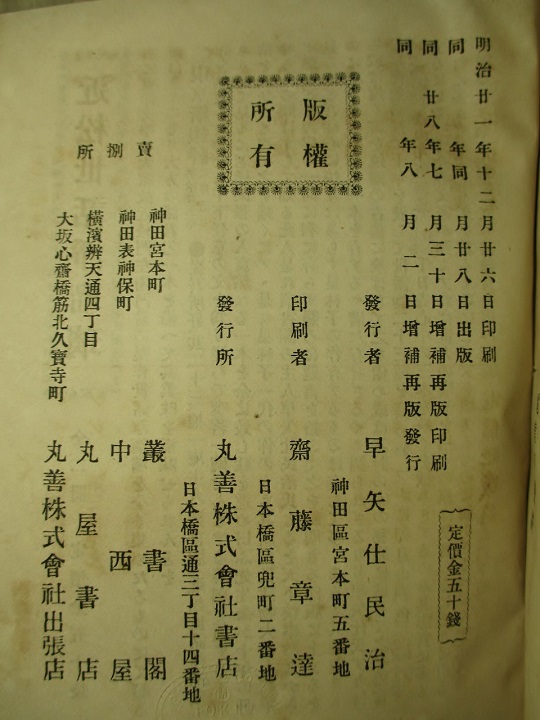 明治廿一年十二月廿六日印刷
同年同月廿八日出版
同廿八年七月三十日增補再版印刷
同年八月二日增補再版發行
定價金五十錢
版權
所有
發行者 早矢仕民治
神田區宮本町五番地
印刷者 齋藤章達
日本橋區兜町二番地
發行所 丸善株式會社書店
日本橋區通三丁目十四番地
賣捌所
神田宮本町 叢書閣
神田表神保町 中西屋
橫濱辨天通四丁目 丸屋書店
大坂心齋橋筋北久寶寺町 丸善株式會社出張店